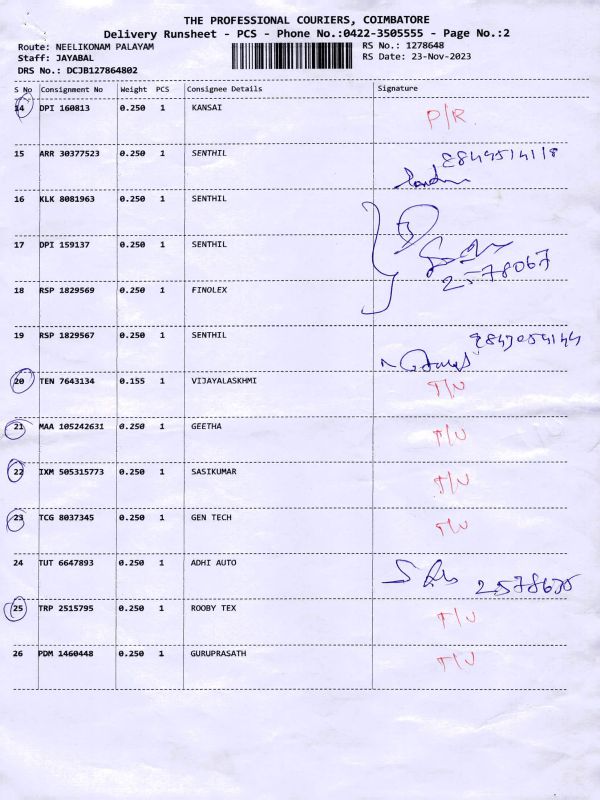 THE PROFESSIONAL COURIERS, COIMBATORE
Delivery Runsheet - PCS - Phone No.:0422-3505555 - Page No.:2
Route: NEELIKONAM PALAYAM RS No.: 1278648
Staff: JAYABAL RS Date: 23-Nov-2023
DRS No.: DCJB127864802
S No Consignment No Weight PCS Consignee Details Signature
14 DPI 160813 0.250 1 KANSAI P/R.
15 ARR 30377523 0.250 1 SENTHIL
16 KLK 8081963 0.250 1 SENTHIL
17 DPI 159137 0.250 1 SENTHIL
2578067
18 RSP 1829569 0.250 1 FINOLEX
19 RSP 1829567 0.250 1 SENTHIL
20 TEN 7643134 0.155 1 VIJAYALASKHMI T/N
21 MAA 105242631 0.250 1 GEETHA T/N
22 IXM 505315773 0.250 1 SASIKUMAR T/N
23 TCG 8037345 0.250 1 GEN TECH T/N
24 TUT 6647893 0.250 1 ADHI AUTO
25 TRP 2515795 0.250 1 ROOBY TEX T/N
26 PDM 1460448 0.250 1 GURUPRASATH T/N